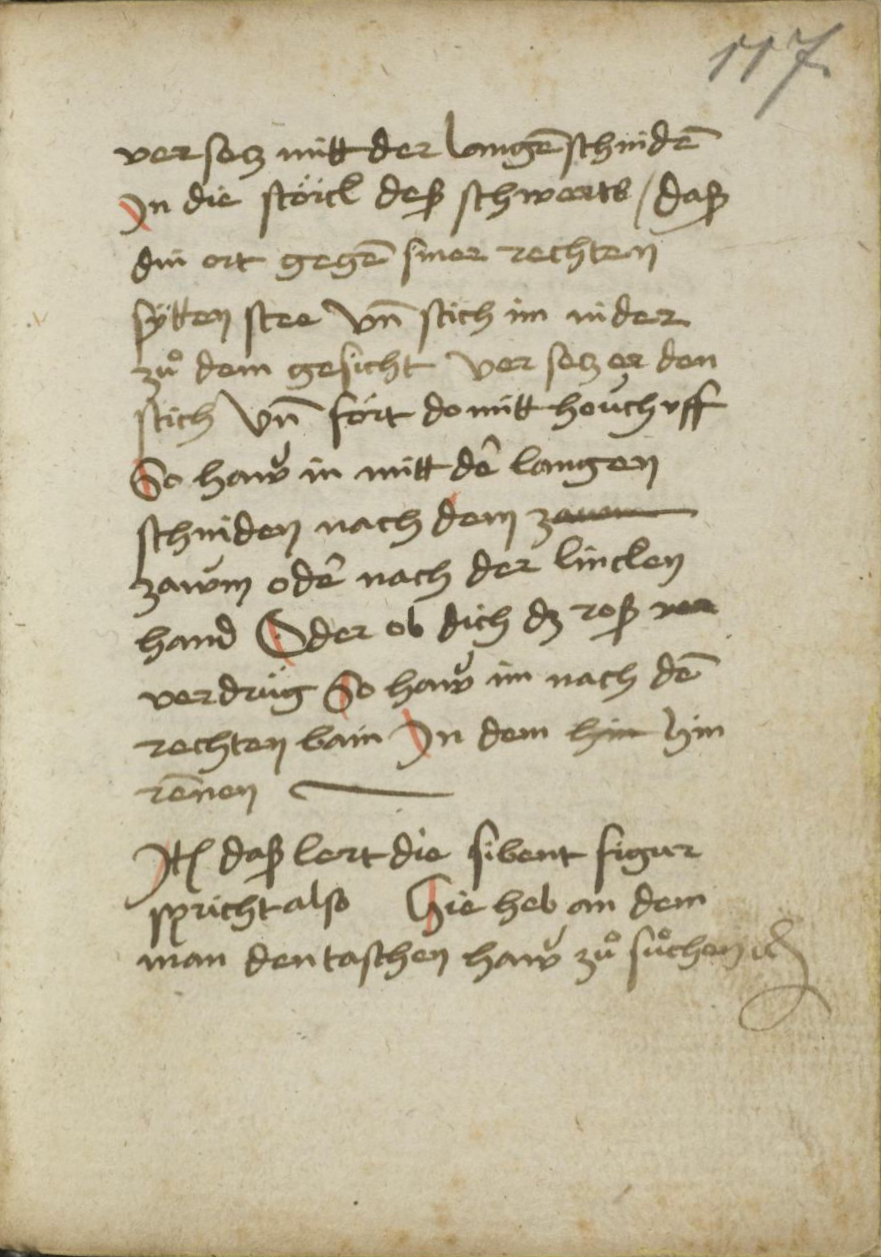 117
ver setz mitt der langen̄ schnidē
In die störcl deß schwertz / daß
din ort gegē siner rechten
sÿtten stee vn̄ stich im nider
zuͦ dem gesicht ver setz er den
stich vn̄ fört do mitt houch vff
So haw in mitt dē langen
schniden nach dem zawm
zawm odē nach der lincken
hand Oder ob dich dz roß ver
verdrüg So haw im nach dē
rechten bain In dem hin hin
rēnen
Itē daß lert die sibent figur
spricht also Hie heb an dem
man den taschen haw zuͦ suͦchen ꝛc